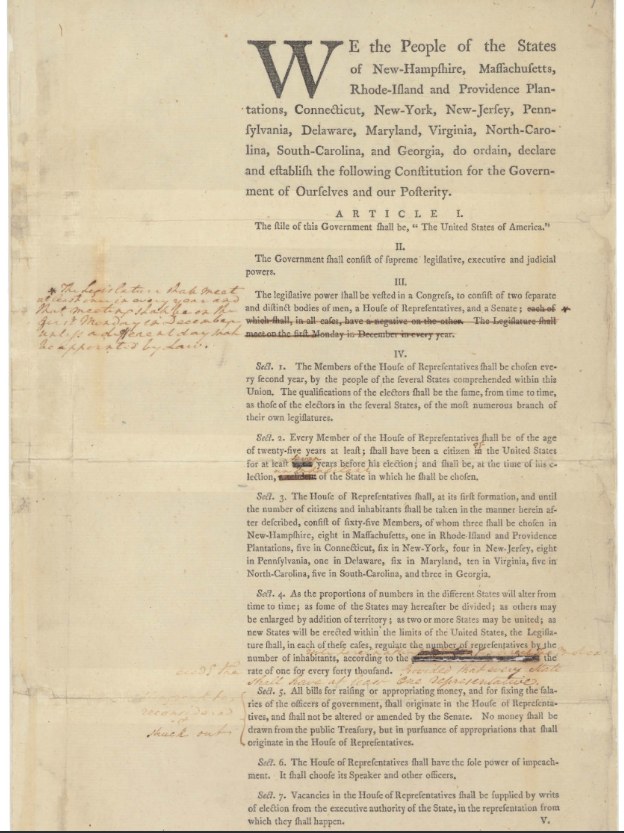 WE the People of the States
of New-Hampſhire, Maſſachuſetts,
Rhode-Iſland and Providence Plan-
tations, Connecticut, New-York, New-Jerſey, Penn-
ſylvania, Delaware, Maryland, Virginia, North-Caro-
lina, South-Carolina, and Georgia, do ordain, declare
and eſtabliſh the following Conſtitution for the Govern-
ment of Ourſelves and our Poſterity.
ARTICLE I.
The ſtile of this Government ſhall be, "The United States of America."
II.
The Government ſhall conſiſt of ſupreme legiſlative, executive and judicial
powers.
III.
The legiſlative power ſhall be veſted in a Congreſs, to conſiſt of two ſeparate
and diſtinct bodies of men, a Houſe of Repreſentatives, and a Senate; each of
which ſhall, in all caſes, have a negative on the other. The Legiſlature ſhall
meet on the firſt Monday in December in every year.
* The Legislature shall meet
at least once in every year and
that meeting shall be on the
first Monday in December
unless a different day shall
be appointed by law.
IV.
Sect. 1. The Members of the Houſe of Repreſentatives ſhall be choſen eve-
ry ſecond year, by the people of the ſeveral States comprehended within this
Union. The qualifications of the electors ſhall be the ſame, from time to time,
as thoſe of the electors in the ſeveral States, of the moſt numerous branch of
their own legiſlatures.
Sect. 2. Every Member of the Houſe of Repreſentatives ſhall be of the age
of twenty-five years at leaſt; ſhall have been a citizen the United States
for at leaſt years before his election; and ſhall be, at the time of his e-
lection, of the State in which he ſhall be choſen.
Sect. 3. The Houſe of Repreſentatives ſhall, at its firſt formation, and until
the number of citizens and inhabitants ſhall be taken in the manner herein af-
ter deſcribed, conſiſt of ſixty-five Members, of whom three ſhall be choſen in
New-Hampſhire, eight in Maſſachuſetts, one in Rhode-Iſland and Providence
Plantations, five in Connecticut, ſix in New-York, four in New-Jerſey, eight
in Pennſylvania, one in Delaware, ſix in Maryland, ten in Virginia, five in
North-Carolina, five in South-Carolina, and three in Georgia.
Sect. 4. As the proportions of numbers in the different States will alter from
time to time; as ſome of the States may hereafter be divided; as others may
be enlarged by addition of territory; as two or more States may be united; as
new States will be erected within the limits of the United States, the Legiſla-
ture ſhall, in each of theſe caſes, regulate the number of repreſentatives by the
number of inhabitants, according to the the
rate of one for every forty thouſand. Provided that every State
shall have at least one representative.
Sect. 5. All bills for raiſing or appropriating money, and for fixing the ſala-
ries of the officers of government, ſhall originate in the Houſe of Repreſenta-
tives, and ſhall not be altered or amended by the Senate. No money ſhall be
drawn from the public Treaſury, but in purſuance of appropriations that ſhall
originate in the Houſe of Repreſentatives.
struck out
Sect. 6. The Houſe of Repreſentatives ſhall have the ſole power of impeach-
ment. It ſhall chooſe its Speaker and other officers.
Sect. 7. Vacancies in the Houſe of Repreſentatives ſhall be ſupplied by writs
of election from the executive authority of the State, in the repreſentation from
which they ſhall happen. V.